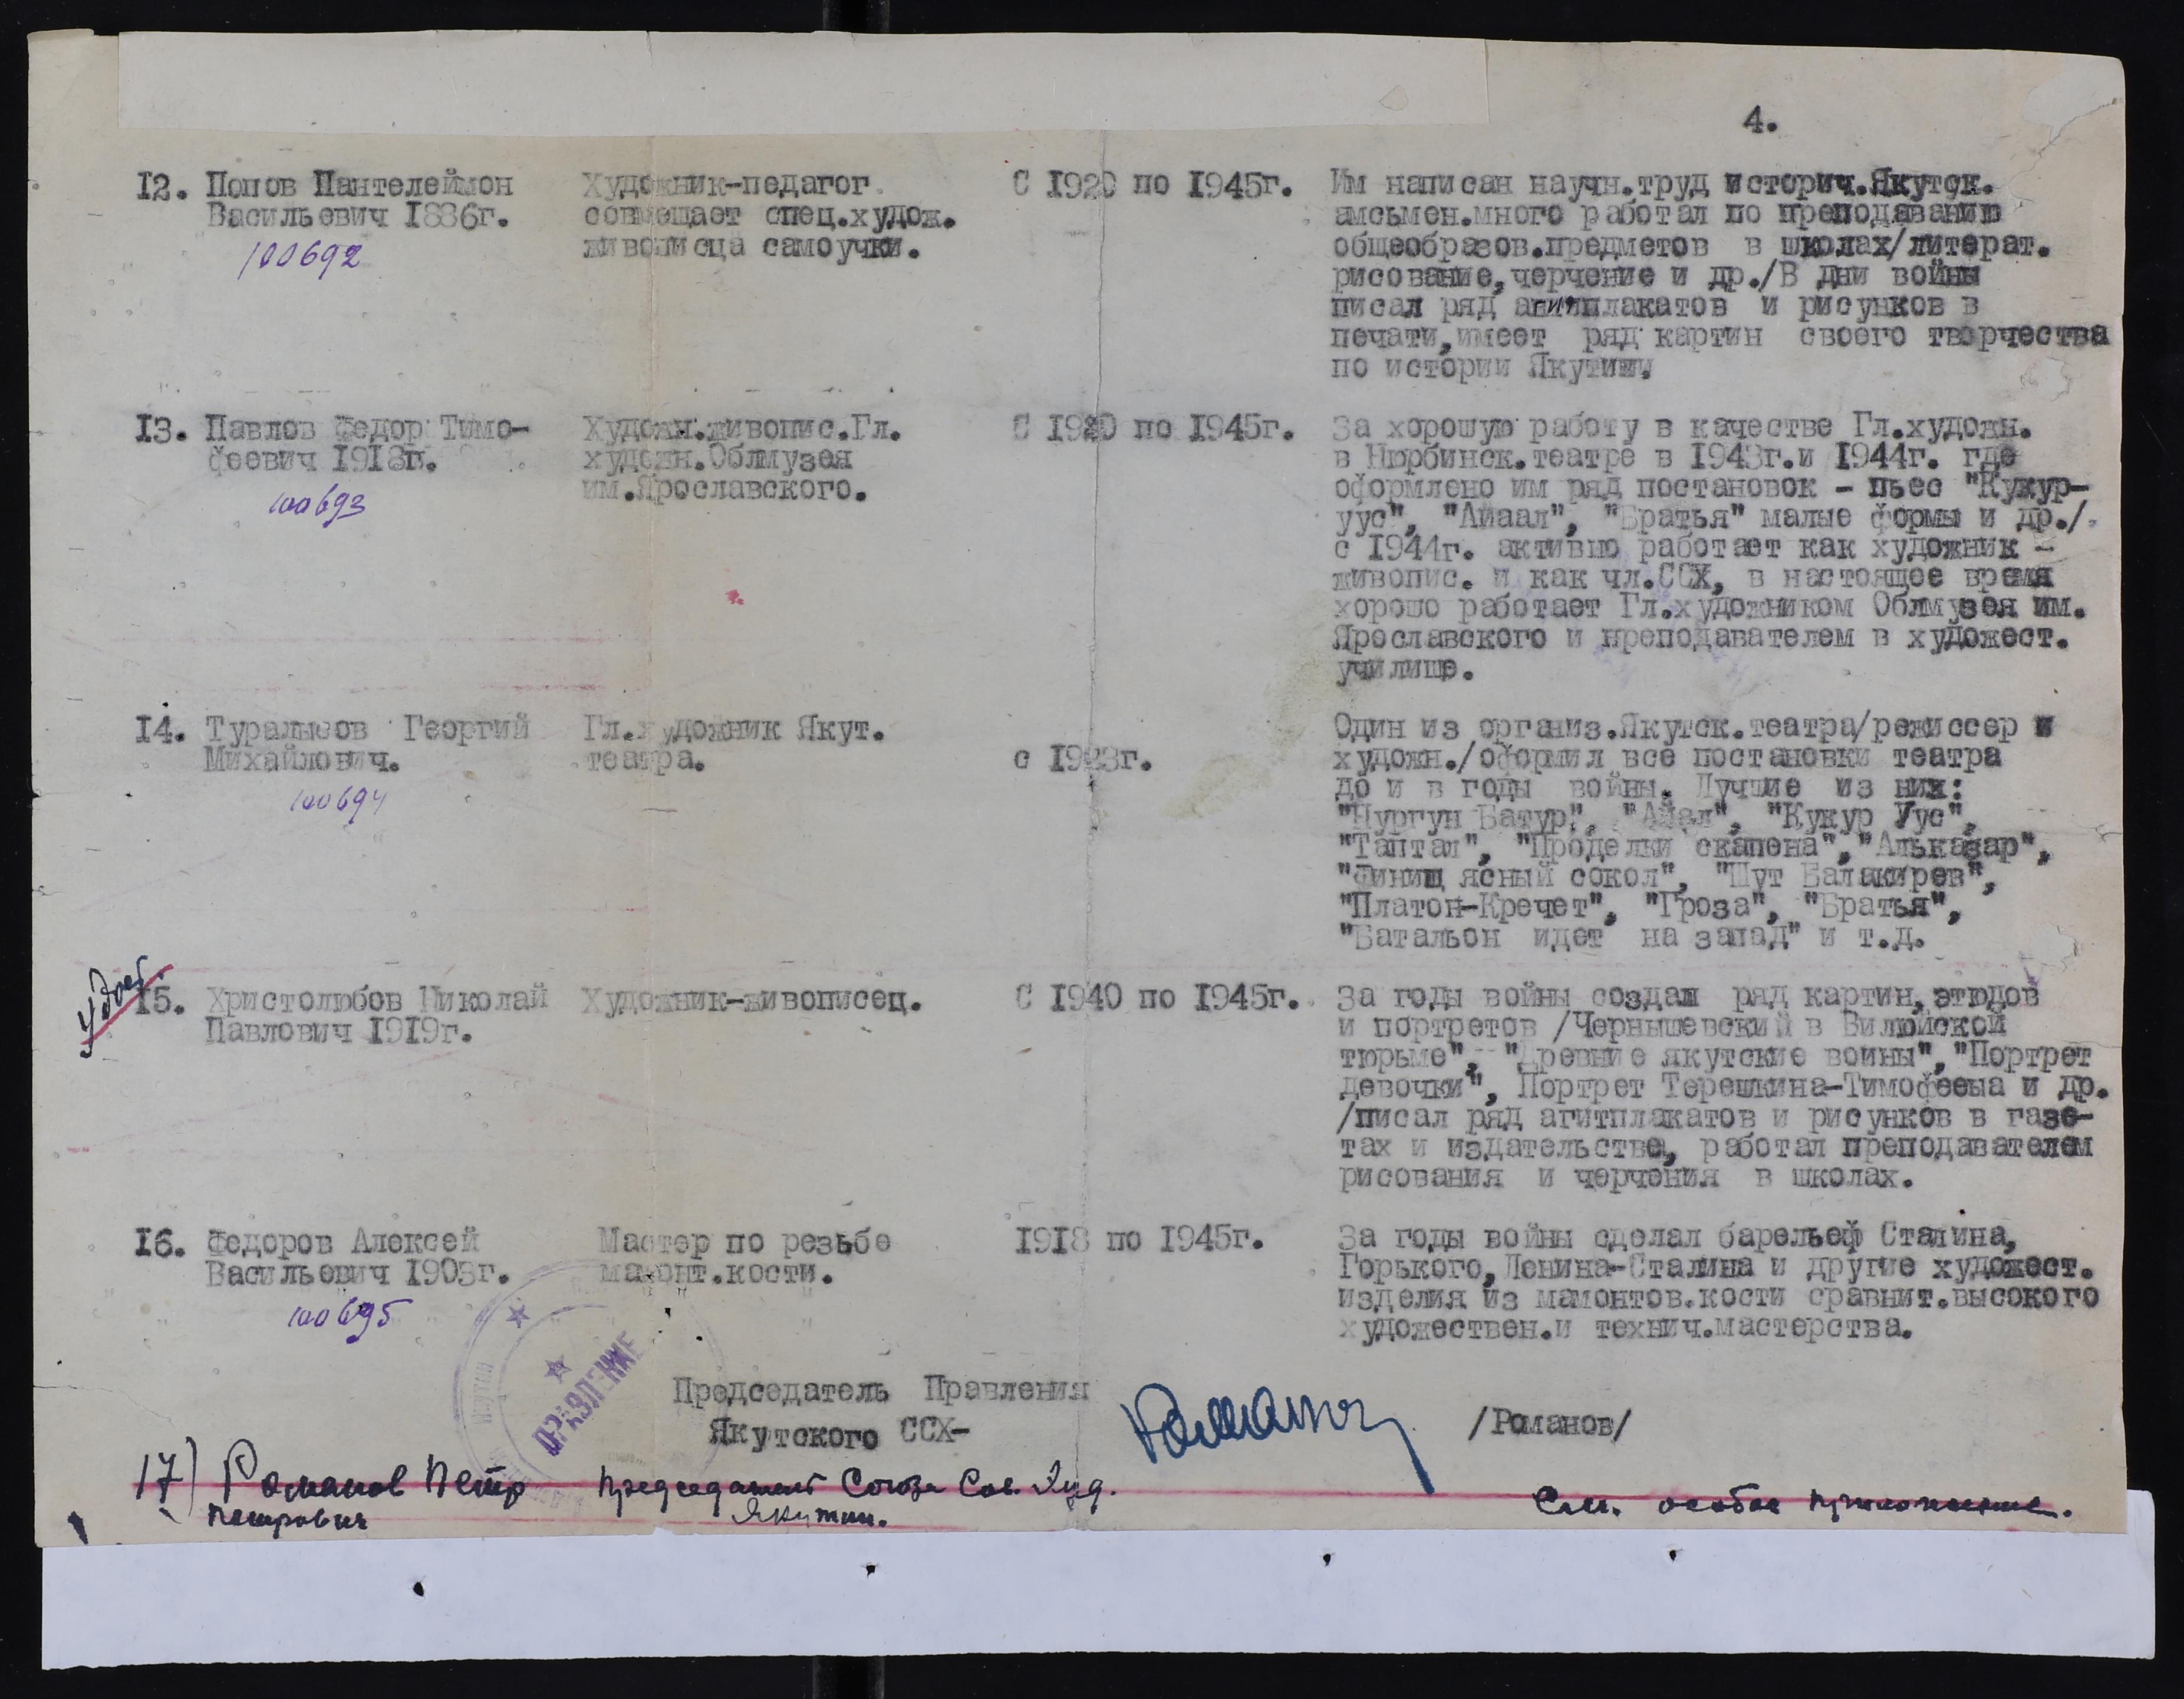 4.
12. Попов Пантелеймон
Васильевич 1886г.
100692
Художник-педагог
совмещает спец.худож.
живописца самоучки.
С 1920 по 1945г.
Им написан научн.труд историч.Якутск.
письмен.много работал по преподаванию
общеобразов.предметов в школах/литерат.
рисование,черчение и др./В дни войны
писал ряд агитплакатов и рисунков в
печати,имеет ряд картин своего творчества
по истории Якутии.
13. Павлов Федор Тимо-
феевич 1918г.
100693
Художн.живопис.Гл.
художн.Облмузея
им.Ярославского.
С 1920 по 1945г.
За хорошую работу в качестве Гл.художн.
в Нюрбинск.театре в 1943г.и 1944г. где
оформлено им ряд постановок - пьес "Кукур-
уус", "Айаал", "Братья" малые формы и др./.
с 1944г. активно работает как художник -
живопис. и как чл.ССХ, в настоящее время
хорошо работает Гл.художником Облмузея им.
Ярославского и преподавателем в художест.
училище.
14. Туралысов Георгий
Михайлович.
100694
Гл.художник Якут.
театра.
с 1923г.
Один из организ.Якутск.театра/режиссер и
художн./оформил все постановки театра
до и в годы войны. Лучшие из них:
"Нургун Батур", "Айал", "Кукур Уус",
"Таптал", "Проделки скапена", "Альказар",
"Финищ ясный сокол", "Шут Балакирев",
"Платон-Кречет", "Гроза", "Братья",
"Батальон идет на запад" и т.д.
15. Христолюбов Николай
Павлович 1919г.
Художник-живописец.
С 1940 по 1945г.
За годы войны создал ряд картин,этюдов
и портретов /Чернышевский в Вилюйской
тюрьме", "Древние якутские воины", "Портрет
девочки", Портрет Терешкина-Тимофеева и др.
/писал ряд агитплакатов и рисунков в газе-
тах и издательстве, работал преподавателем
рисования и черчения в школах.
16. Федоров Алексей
Васильевич 1903г.
100695
Мастер по резьбе
мамонт.кости.
1918 по 1945г.
За годы войны сделал барельеф Сталина,
Горького, Ленина-Сталина и другие художест.
изделия из мамонтов.кости сравнит.высокого
художествен.и технич.мастерства.
ПРАВЛЕНИЕ
Председатель Правления
Якутского ССХ-
/Романов/
17) Романов Петр
Петрович
Председатель Союза Сов. Худ.
Якутии.
См. особое приложение.